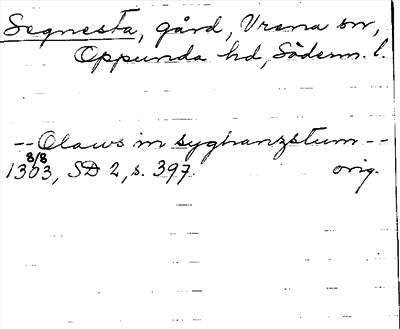 Segnesta, gård, Vrena sn,
Oppunda hd, Söderm. l.
-- Olaws in syghanzstum --
8/8
1303, SD 2, s. 397. orig.